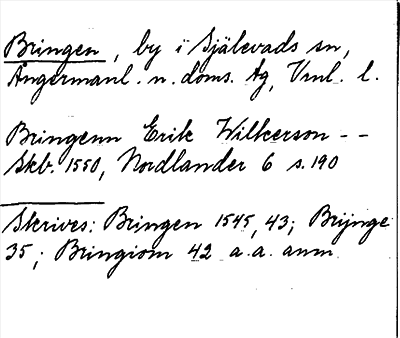 Bringen, by i Själevads sn,
Ångermanl. n. doms. tg, Vnl. l.
Bringenn Erik Wilkerson - -
Skb. 1550, Nordlander 6 s. 190
Skrives: Bringen 1545, 43; Brijnge
35; Bringiom 42 a.a. anm